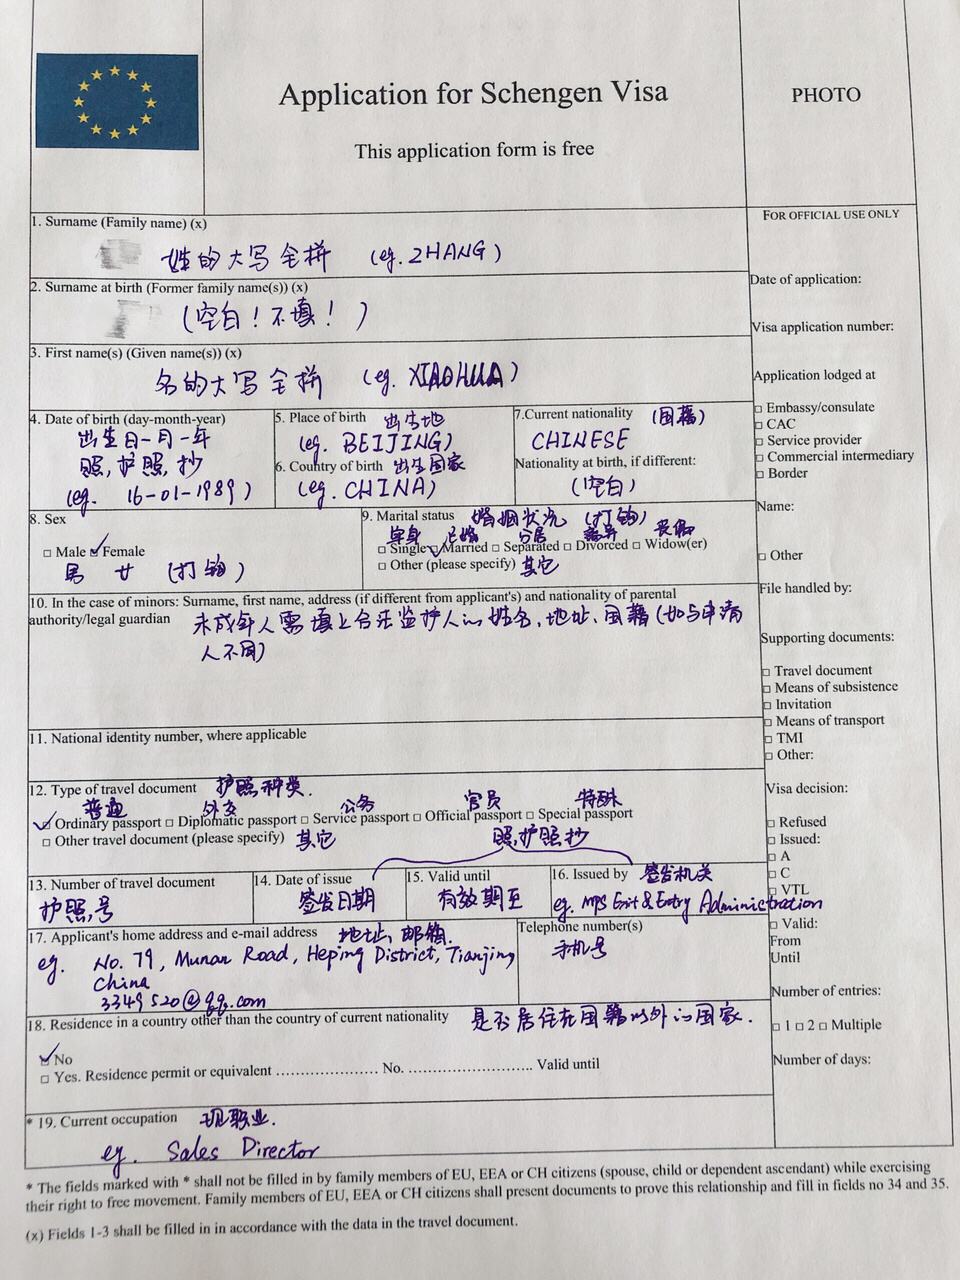 Application for Schengen Visa
This application form is free
PHOTO
1. Surname (Family name) (x)
姓的大写全拼 (eg. ZHANG)
2. Surname at birth (Former family name(s)) (x)
(空白！不填！)
3. First name(s) (Given name(s)) (x)
名的大写全拼 (eg. XIAOHUA)
4. Date of birth (day-month-year)
出生日-月-年
照,护照,抄
(eg. 16-01-1989)
5. Place of birth 出生地
(eg. BEIJING)
6. Country of birth 出生国家
(eg. CHINA)
7.Current nationality (国籍)
CHINESE
Nationality at birth, if different:
(空白)
8. Sex
□ Male □ Female
男 女 (打钩)
9. Marital status 婚姻状况 (打钩)
单身 已婚 分居 离异 丧偶
□ Single □ Married □ Separated □ Divorced □ Widow(er)
□ Other (please specify) 其它
10. In the case of minors: Surname, first name, address (if different from applicant's) and nationality of parental
authority/legal guardian 未成年人需填上合法监护人的姓名、地址、国籍(如与申请
人不同)
11. National identity number, where applicable
12. Type of travel document 护照种类.
普通 外交 公务 官员 特殊
□ Ordinary passport □ Diplomatic passport □ Service passport □ Official passport □ Special passport
□ Other travel document (please specify) 其它 照,护照抄
13. Number of travel document
护照,号
14. Date of issue
签发日期
15. Valid until
有效期至
16. Issued by 签发机关
eg. MPS Exit & Entry Administration
17. Applicant's home address and e-mail address 地址、邮箱.
eg. No. 79, Munan Road, Heping District, Tianjing
China
3349520@qq.com
Telephone number(s)
手机号
18. Residence in a country other than the country of current nationality 是否居住在国籍以外的国家.
□ No
□ Yes. Residence permit or equivalent ..................... No. ........................... Valid until
* 19. Current occupation 现职业.
eg. Sales Director
FOR OFFICIAL USE ONLY
Date of application:
Visa application number:
Application lodged at
□ Embassy/consulate
□ CAC
□ Service provider
□ Commercial intermediary
□ Border
Name:
□ Other
File handled by:
Supporting documents:
□ Travel document
□ Means of subsistence
□ Invitation
□ Means of transport
□ TMI
□ Other:
Visa decision:
□ Refused
□ Issued:
□ A
□ C
□ VTL
□ Valid:
From
Until
Number of entries:
□ 1 □ 2 □ Multiple
Number of days:
* The fields marked with * shall not be filled in by family members of EU, EEA or CH citizens (spouse, child or dependent ascendant) while exercising
their right to free movement. Family members of EU, EEA or CH citizens shall present documents to prove this relationship and fill in fields no 34 and 35.
(x) Fields 1-3 shall be filled in in accordance with the data in the travel document.